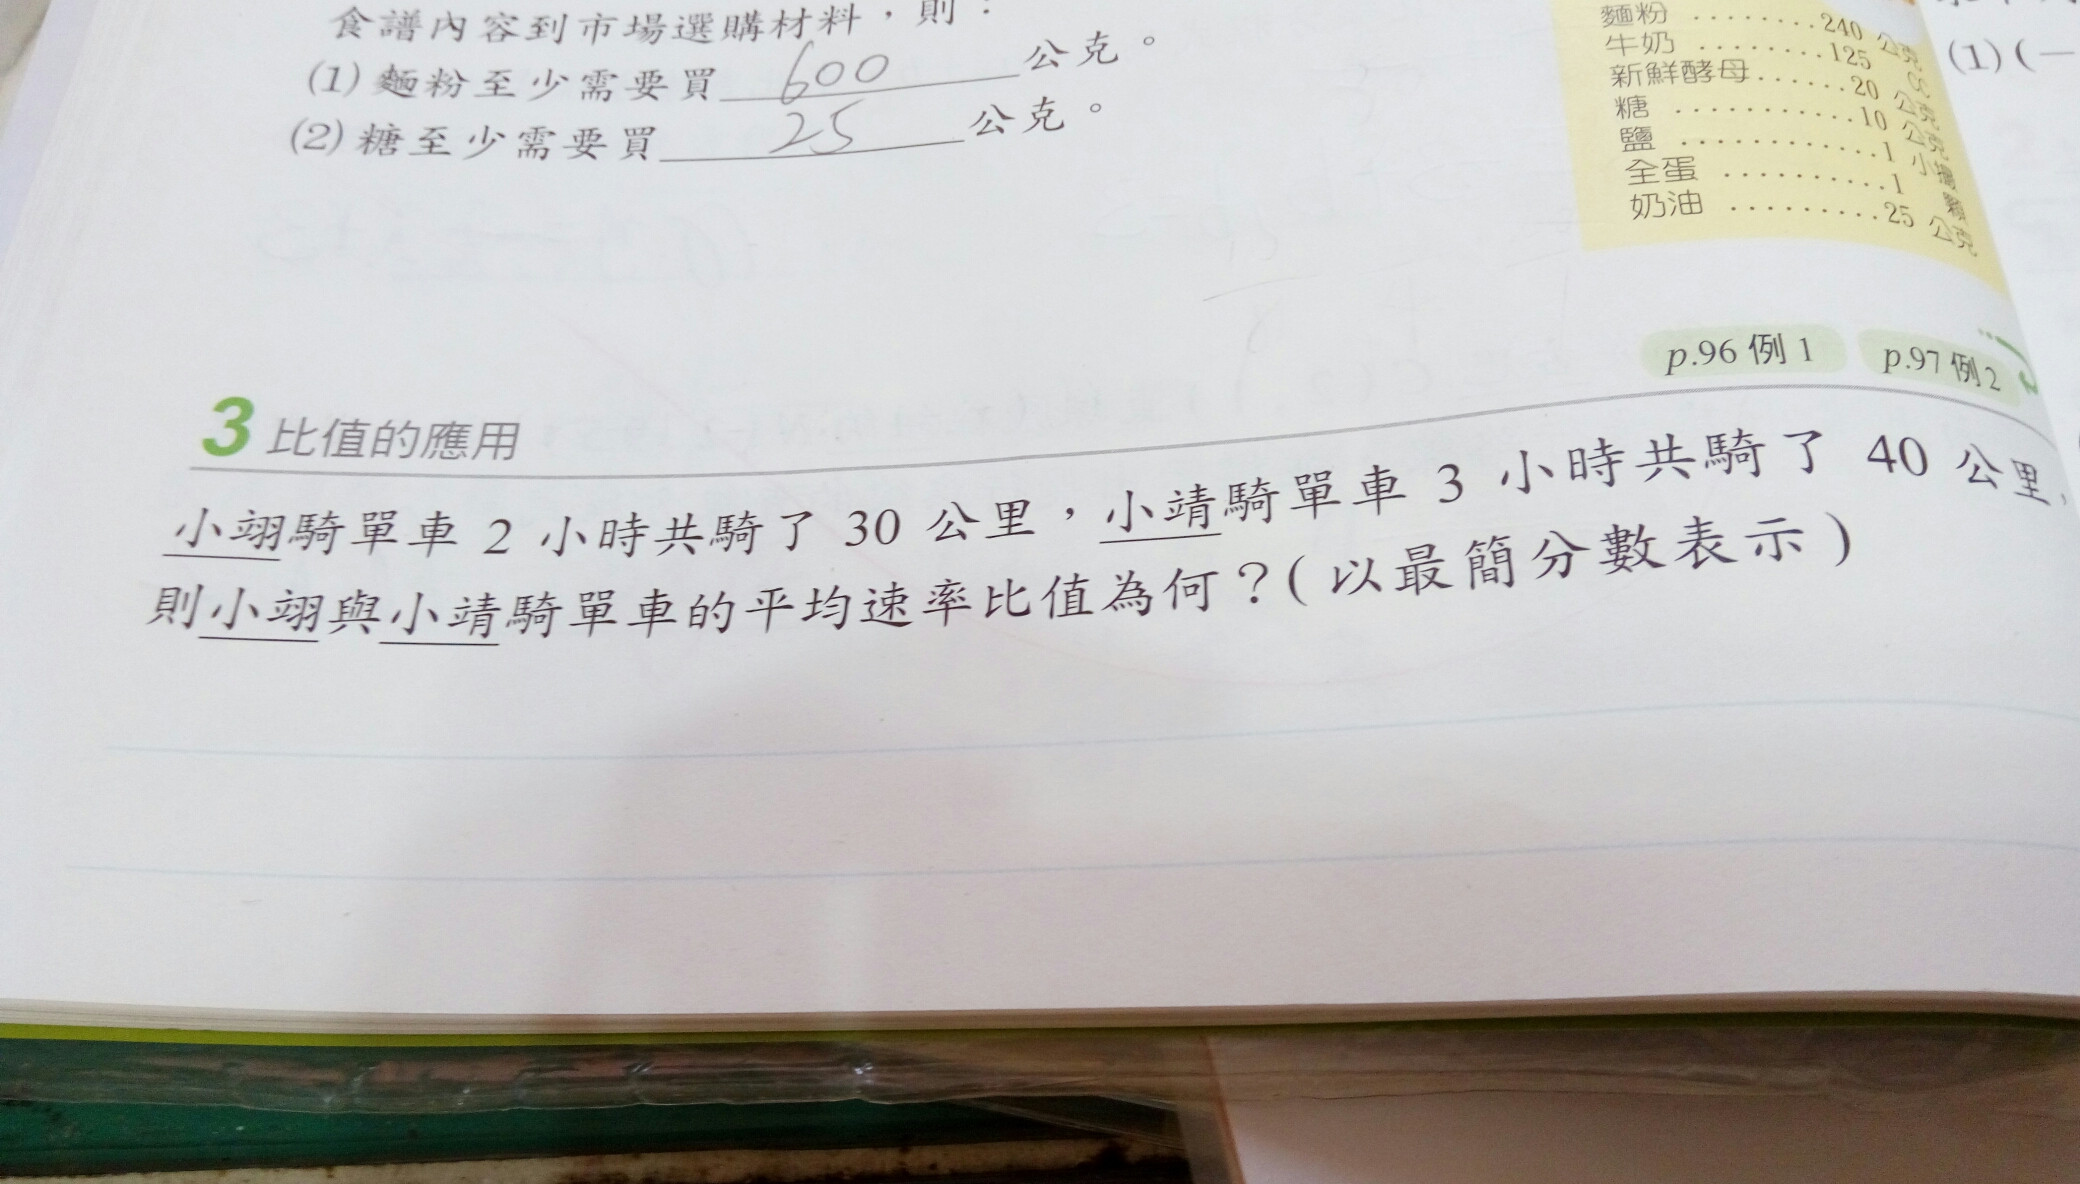 食譜內容到市場選購材料，則：
(1) 麵粉至少需要買 600 公克。
(2) 糖至少需要買 25 公克。
麵粉 ........240 公克
牛奶 ........125 cc
新鮮酵母......20 公克
糖 ...........10 公克
鹽 ............1 小撮
全蛋 ..........1 顆
奶油 .........25 公克
(1) (−
p.96 例 1 p.97 例 2
3 比值的應用
小翊騎單車 2 小時共騎了 30 公里，小靖騎單車 3 小時共騎了 40 公里，
則小翊與小靖騎單車的平均速率比值為何？(以最簡分數表示)